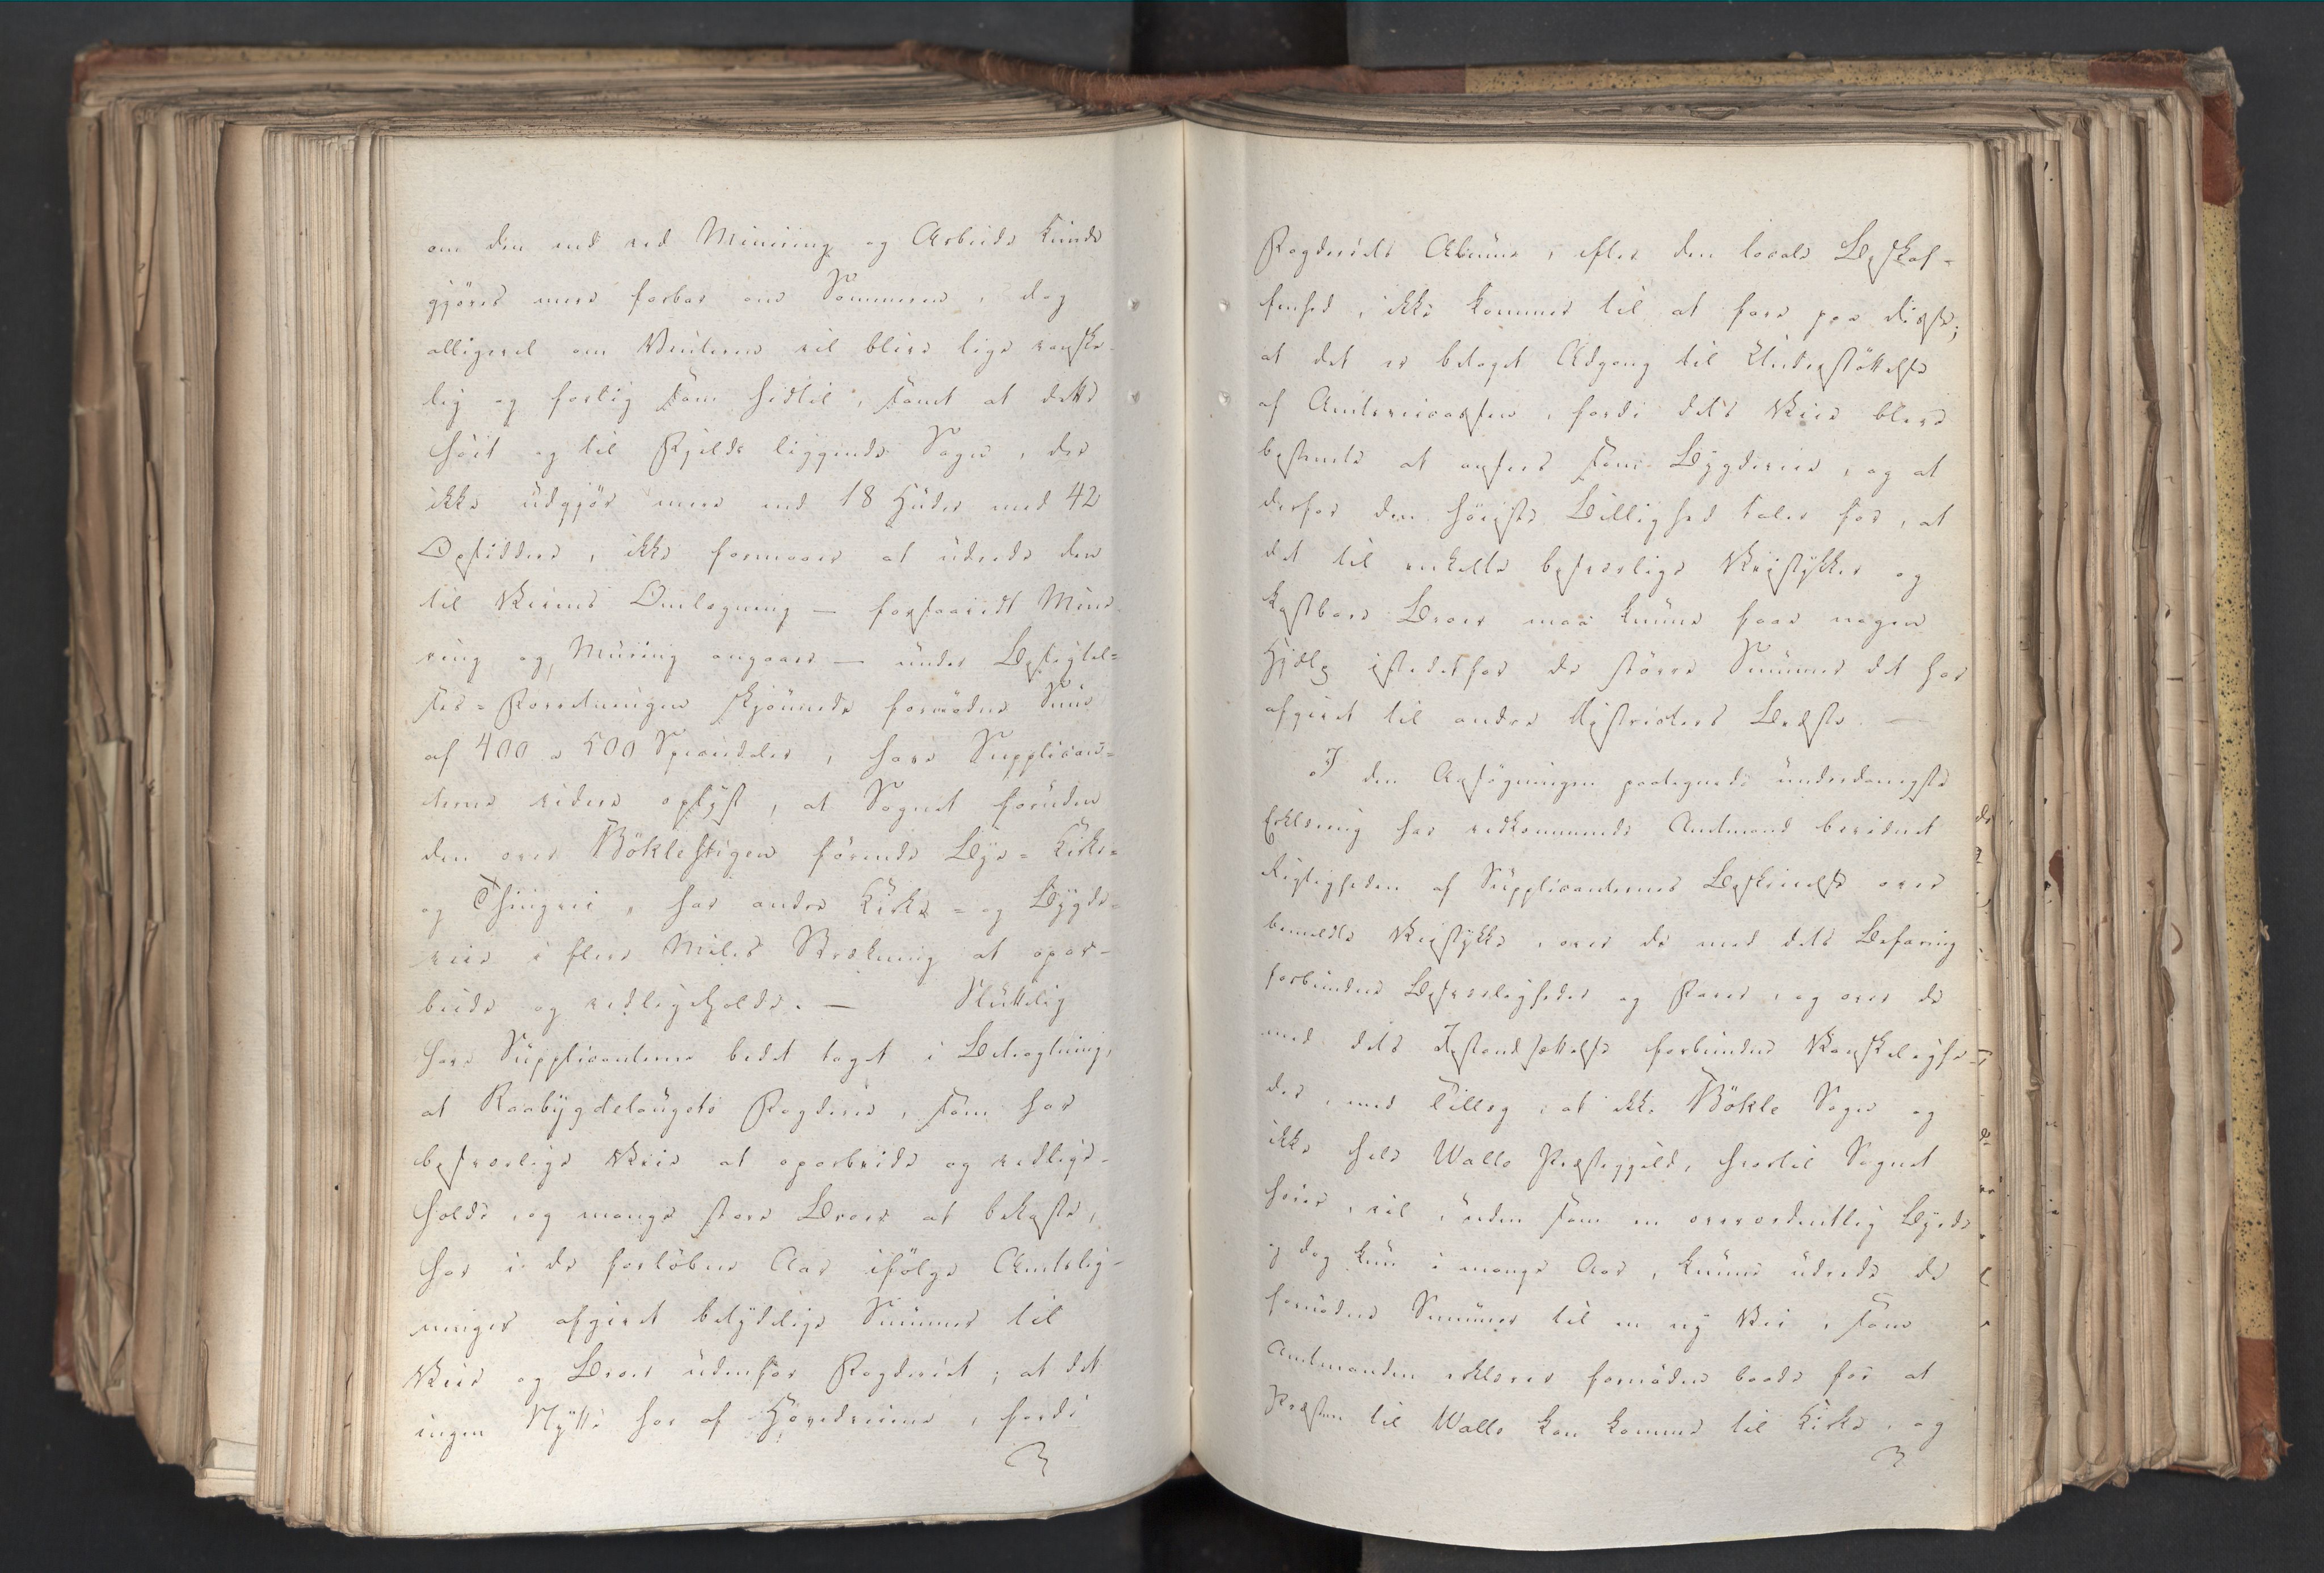 om den end ved Minering og Arbeide kunde
gjøres mere farbar om Sommeren, dog
alligevel om Vinteren vil blive lige vanske-
lig og farlig som hidtil, samt at dette
høit og til Fjelds liggende Sogn, der
ikke udgjør mere end 18 Huder med 42
Opsiddere, ikke formaaer at udrede den
til Veiens Omlægning – forsaavidt Mine-
ring og Muring angaaer – under Besigtel-
ses-Forretningen skjønnede fornødne Sum
af 400 a 500 Speciedaler, have Supplican-
terne videre oplyst, at Sognet foruden
den over Bøklestigen førende Bye- Kirke-
og Thingvei, har andre Kirke- og Bygde-
veie i flere Miles Strækning at opar-
beide og vedligeholde. – Sluttelig
have Supplicanterne bedet taget i Betragtning,
at Raabygdelaugets Fogderie, som har
besværlige Veie at oparbeide og vedlige-
holde, og mange store Broer at bekoste,
har i de forløbne Aar ifølge Amtslig-
ninger afgivet betydelige Summer til
Veie og Broer udenfor Fogderiet; at det
ingen Nytte har af Hovedveiene, fordi
Fogderiets Almue, efter den locale Beskaf-
fenhed, ikke kommer til at fare paa disse;
at det er betaget Adgang til Understøttelse
af Amtsveicassen, fordi dets Veie bleve
bestemte at ansees som Bygdeveie, og at
derfor den høieste Billighed taler for, at
det til enkelte besværlige Veistykker og
kostbare Broer maa kunne faae nogen
Hjelp istedetfor de større Summer det har
afgivet til andre Districters Bedste. –
I den Ansøgningen paategnede underdanigste
Erklæring har vedkommende Amtmand bevidnet
Rigtigheden af Supplicanternes Beskrivelse over
bemeldte Veistykke, over de med dets Befaring
forbundne Besværligheder og Farer, og over de
med dets Istandsættelse forbundne Vanskelighe-
der, med Tillæg, at ikke Bøkle Sogn og
ikke hele Walle Præstegjeld, hvortil Sognet
hører, vil, uden som en overordentlig Byrde
og dog kun i mange Aar, kunne udrede de
fornødne Summer til en ny Vei, som
Amtmanden erklærer fornøden baade for at
Præsten til Walle kan komme til Kirke, og